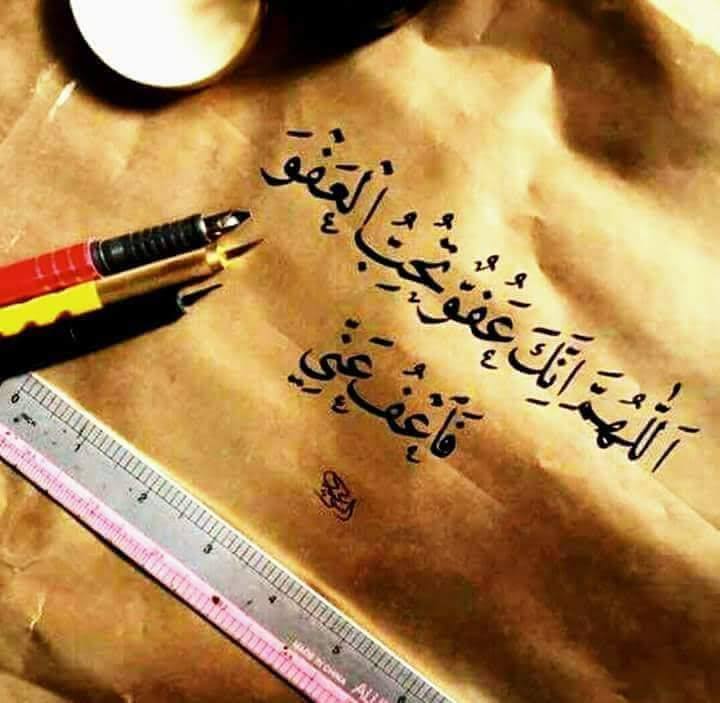 اَللّٰهُمَّ اِنَّكَ عَفُوٌّ تُحِبُّ الْعَفْوَ
فَاعْفُ عَنِّي
0 1 2 3 4 5 6
MADE IN CHINA